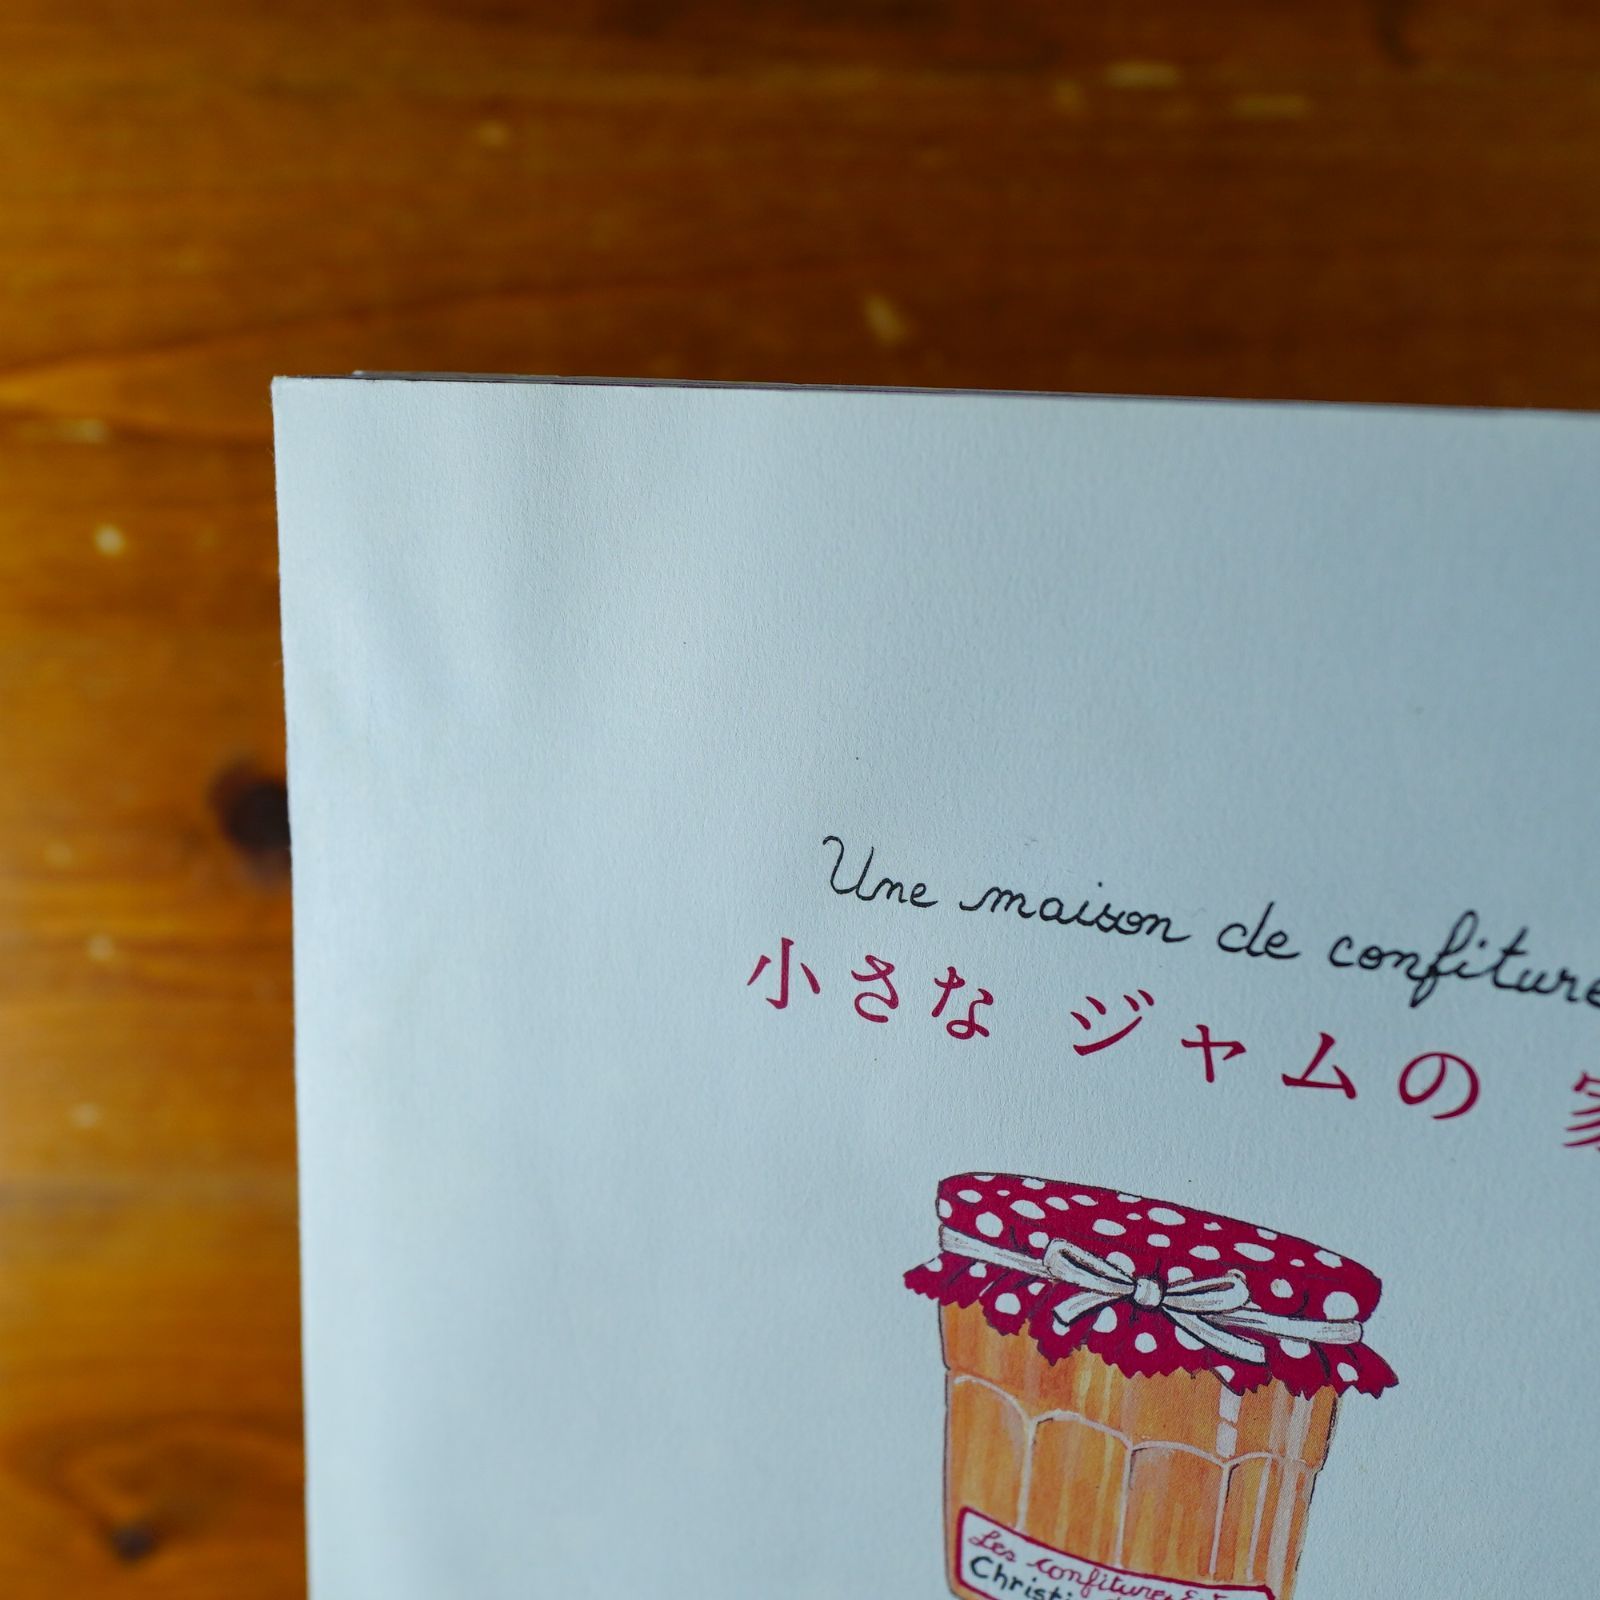 Une maison de confiture
小さな ジャムの 家
Les confitures